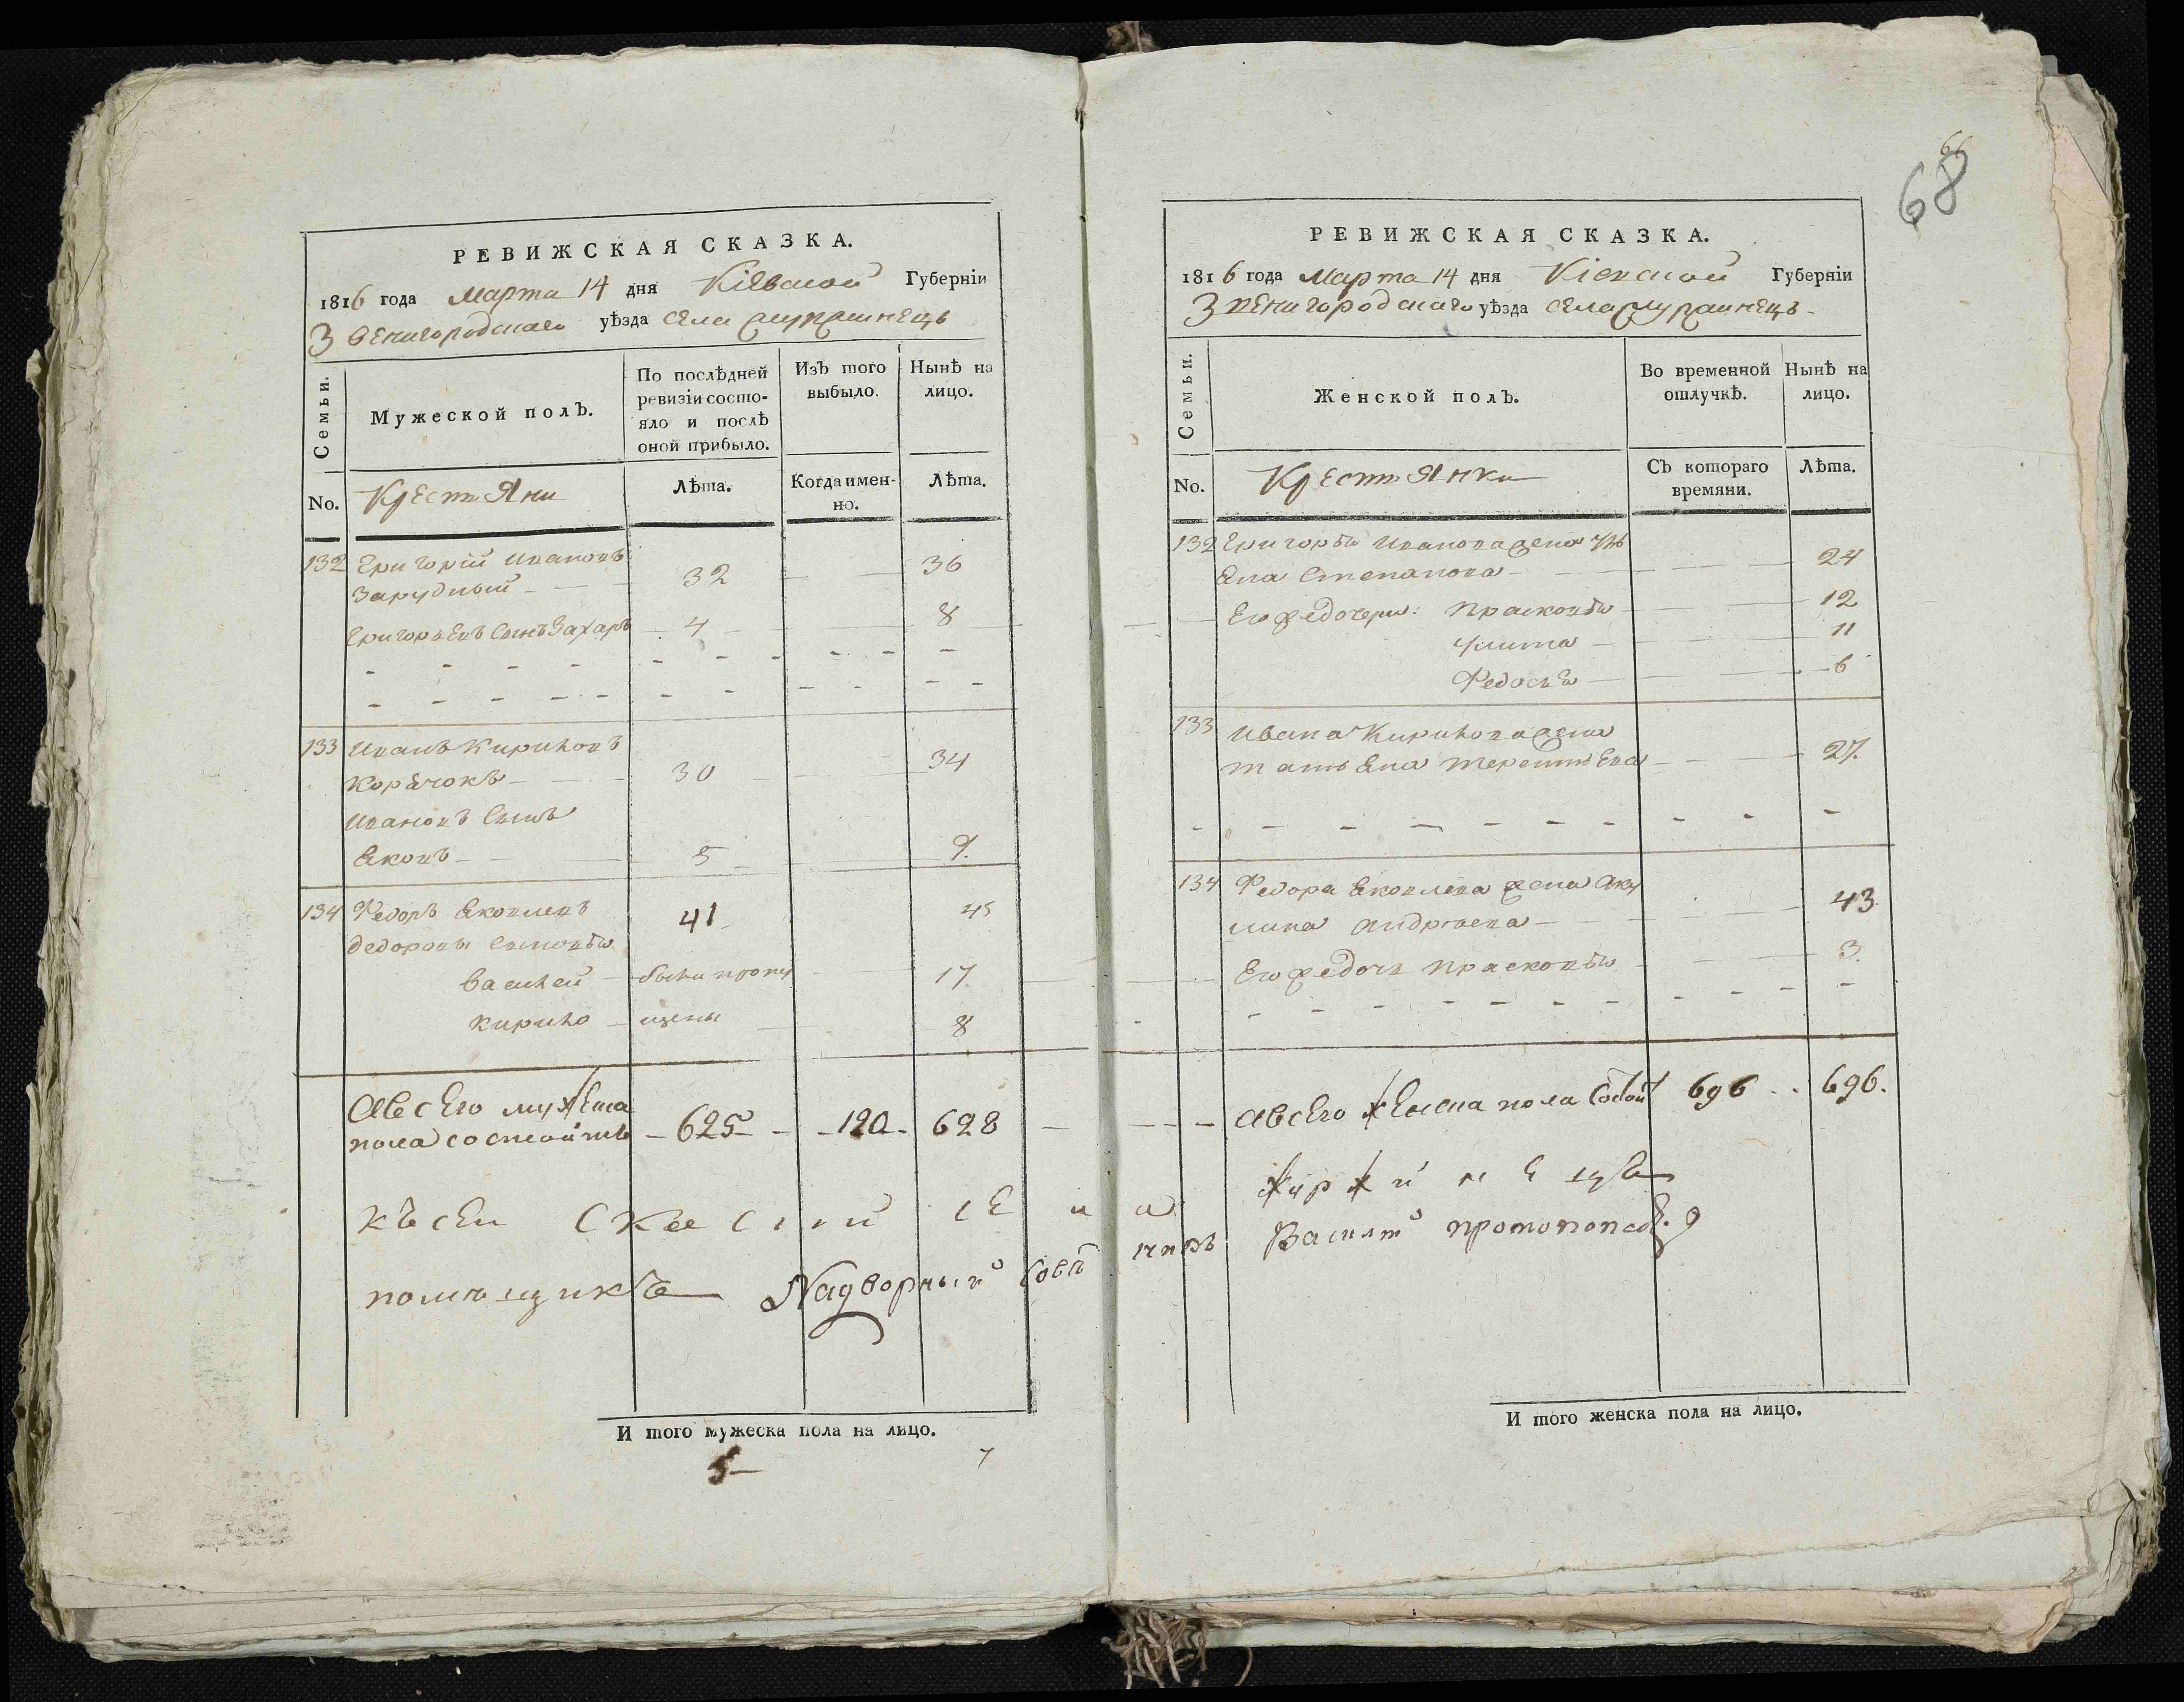 РЕВИЖСКАЯ СКАЗКА.
1816 года Марта 14 дня Кіевской Губерніи
Звенигородскаго уѣзда села
Семьи.
Мужеской полЪ.
По послѣдней ревизіи состо-
яло и послѣ
оной прибыло.
ИзЪ того выбыло.
Нынѣ на лицо.
No. Крестьяни Лѣта. Когда имен-
но. Лѣта.
132 Григорій Ивановъ
Зарудный 32 36
Григорьевъ Сынъ Захаръ 4 8
133 Иванъ Кириловъ
30 34
Ивановъ Сынъ
Яковъ 5 9.
134 Федоръ Яковлевъ 41 45
Федоровы Сыновья
Василей были пропу 17.
Кирило щены 8
Авсего мужеска
пола состоитъ 625 120 628
Къ сей
помѣщикъ Надворный Совѣтникъ
И того мужеска пола на лицо.
5 7
68
66
РЕВИЖСКАЯ СКАЗКА.
1816 года Марта 14 дня Кіевской Губерніи
Звенигородскаго уѣзда села
Семьи.
Женской полЪ.
Во временной отлучкѣ.
Нынѣ на лицо.
No. Крестьянки СЪ котораго
времяни. Лѣта.
132 Григорья Иванова жена Уль
яна Степанова 24
Его же дочери: Прасковья 12
Улита 11
Федосья 6
133 Ивана Кирилова жена
Татьяна Терентьева 27.
134 Федора Яковлева жена Аку
лина Андреева 43
Его же дочь Прасковья 3.
Авсего женска пола 696 696.
Василій
И того женска пола на лицо.